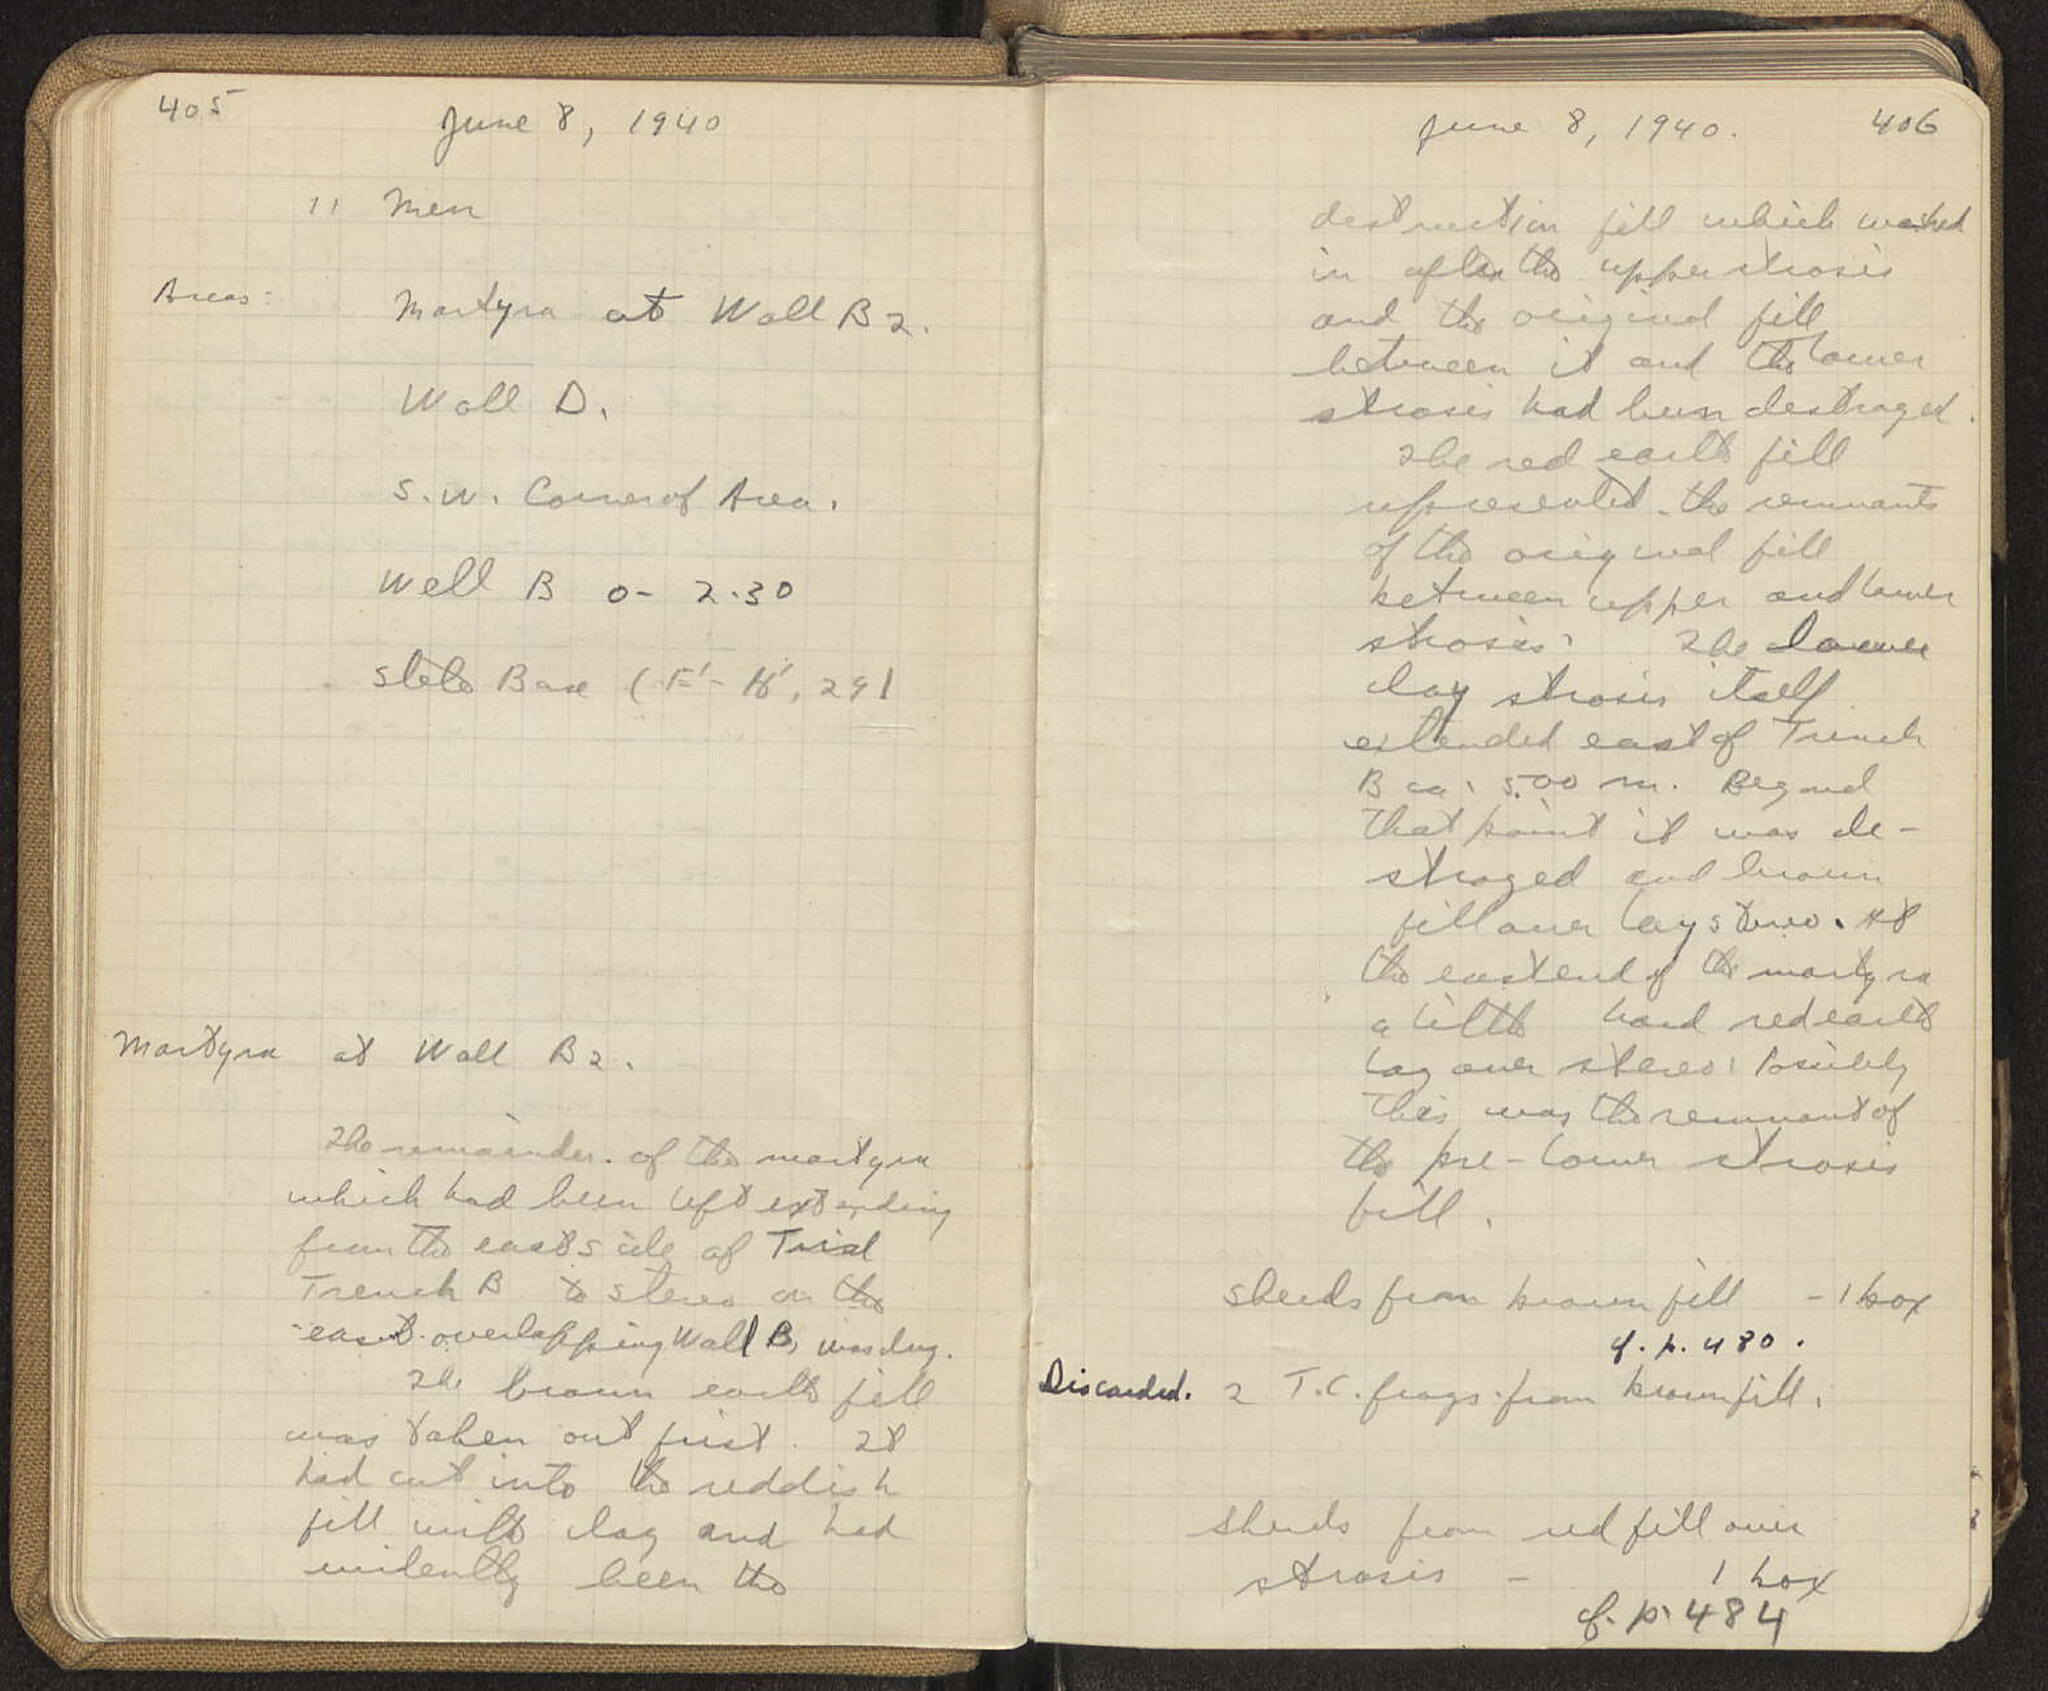 405
June 8, 1940
11 Men
Areas: Martyra at Wall B2.
Wall D.
S.W. Corner of Area.
Well B 0- 2.30
Stele Base (F'- H', 29)
Martyra at Wall B2.
The remainder of the martyra
which had been left extending
from the east side of Trial
Trench B to stereo on the
east overlapping Wall B, was dug.
The brown earth fill
was taken out first. It
had cut into the reddish
fill with clay and had
evidently been the
June 8, 1940. 406
destruction fill which washed
in after the upper strosis
and the original fill
between it and the lower
strosis had been destroyed.
The red earth fill
represented the remnants
of the original fill
between upper and lower
strosis. The lower
clay strosis itself
extended east of Trench
B ca. 5.00 m. Beyond
that point it was de-
stroyed and brown
fill over lay stereo. At
the east end of the martyra
a little hard red earth
lay over stereo. Possibly
this was the remnant of
the pre-lower strosis
fill.
Sherds from brown fill - 1 box
cf. p. 480.
Discarded. 2 T.C. frags. from brown fill.
Sherds from red fill over
strosis - 1 box
cf. p. 484